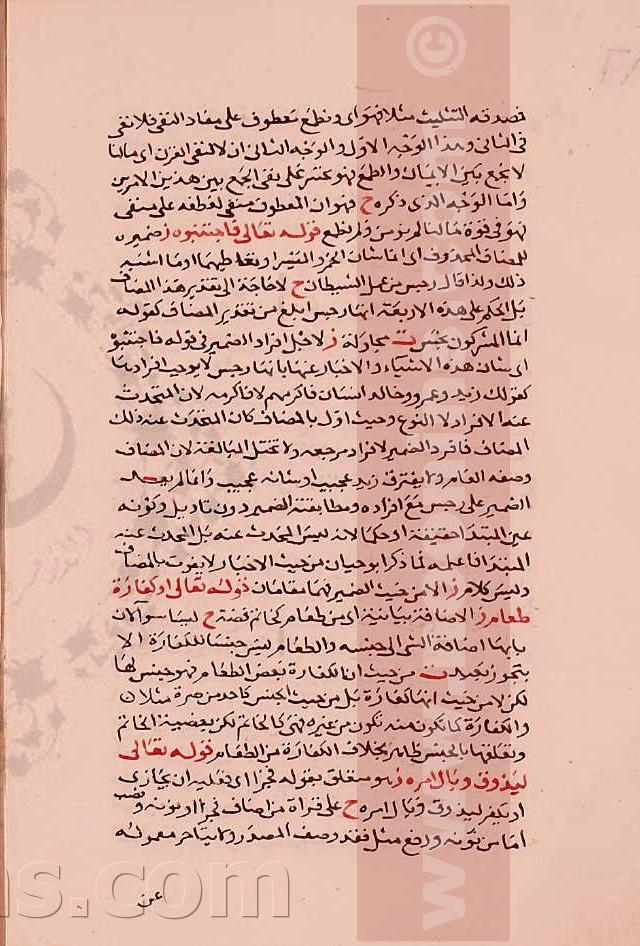 فصدوقه التثليث مثلا فهو اى ونطمع معطوف على مفاد النفى فلا نفى
فى الثانى وهذا الوجه الاول والوجه الثانى ان لا لنفى القرن اى مالنا
لا نجمع بين الايمان والطمع فهو عند على نفى الجمع بين هذين الامرين
واما الوجه الذى ذكره ح فهو ان المعطوف منفى لعطفه على منفى
فهو فى قوة مالنا لم نؤمن ولم نطمع قوله تعالى فاجتنبوه ز ضميره
للمضاف المحذوف اى انما شان الخمر والميسر او تعاطيهما او ما اشبه
ذلك ولذا قال رجس من عمل الشيطان ح لا حاجة الى تقدير هذا المضاف
بل الحكم على هذه الاربعة انها رجس ابلغ من تقدير المضاف كقوله
انما المشركون نجس ت مجادلة ز لاجل افراد الضمير فى قوله فاجتنبوه
اى شان هذه الاشياء والاخبار عنها بانها رجس لا يوجب افرادها
كقولك زيد وعمرو وخالد انسان فاكرمهم لا فاكرمه لان المتحدث
عنه الافراد لا النوع وحيث اول بالمضاف كان المتحدث عنه ذلك
المضاف فافرد الضمير لافراد مرجعه ولا تختل المبالغة لان المضاف
وصفه العام ولا يفترق زيد عجيب او شانه عجيب وانما لم يعد
الضمير على رجس مع افراده ومطابقته الضمير دون تاويل وكونه
عين المبتدا حقيقة او حكما لانه ليس المحدث عنه بل المحدث عنه
المبتدا فاعلمه لما ذكر ابو حيان من حيث الاخبار لا يفوت بالمضاف
وليس كلام ز الا من حيث الضمير فهما مقامان قوله تعالى او كفارة
طعام ز الاضافة بيانية اى من طعام كخاتم فضة ح ليسا سوآ لان
بابها اضافة الشى الى جنسه والطعام ليس جنسا للكفارة الا
بتجوز بعيد ت من حيث ان الكفارة بعض الطعام فهو جنس لها
لكن لا من حيث انها كفارة بل من حيث الجنس كاحد من صرة مثلا ن
والكفارة كما تكون منه تكون من غيره فهى كالخاتم لكن بعضية الخاتم
وتعلقها بالجنس ظاهر بخلاف الكفارة من الطعام قوله تعالى
ليذوق وبال امره ز هو متعلق بقوله فجزا اى فعليه ان يجازى
او يكفر ليذوق وبال امره ح على قراة من اضاف فجزا او نونه ونصب
اما من نونه ورفع مثل فقد وصف المصدر ولا يتاخر معموله
عن
ns.com
www.
©